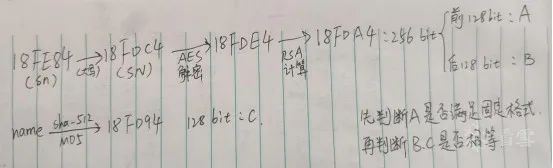 18FE84 (大写)→ 18FDC4 AES解密→ 18FDE4 RSA计算→ 18FDA4 : 256 bit { 前128bit : A
(sn) (SN) 后128 bit : B
name sha-512 MD5→ 18FD94 128 bit : C. 先判断A是否满足固定格式.
再判断B.C是否相等